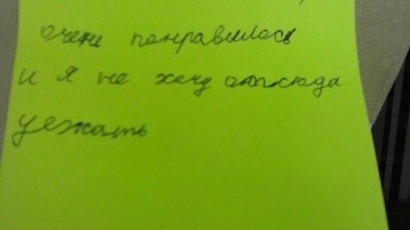 очень понравилось
и я не хочу отсюда
уезжать